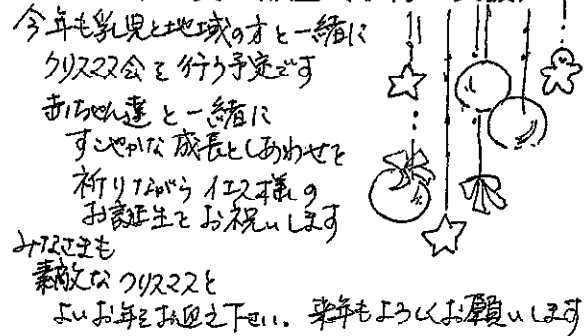 今年も乳児と地域の方と一緒に
クリスマス会を行う予定です
赤ちゃん達と一緒に
すこやかな成長としあわせを
祈りながらイエス様の
お誕生をお祝いします
みなさまも
素敵なクリスマスと
よいお年をお迎え下さい。来年もよろしくお願いします